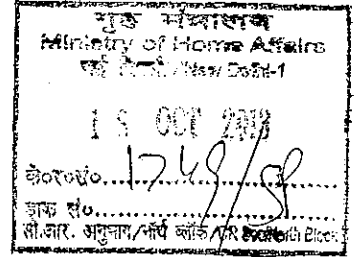 गृह मंत्रालय
Ministry of Home Affairs
नई दिल्ली/New Delhi-1
OCT
के०र०सं०.......1749/
डाक सं०..........
सी.आर. अनुभाग/नॉर्थ ब्लॉक/CR Block